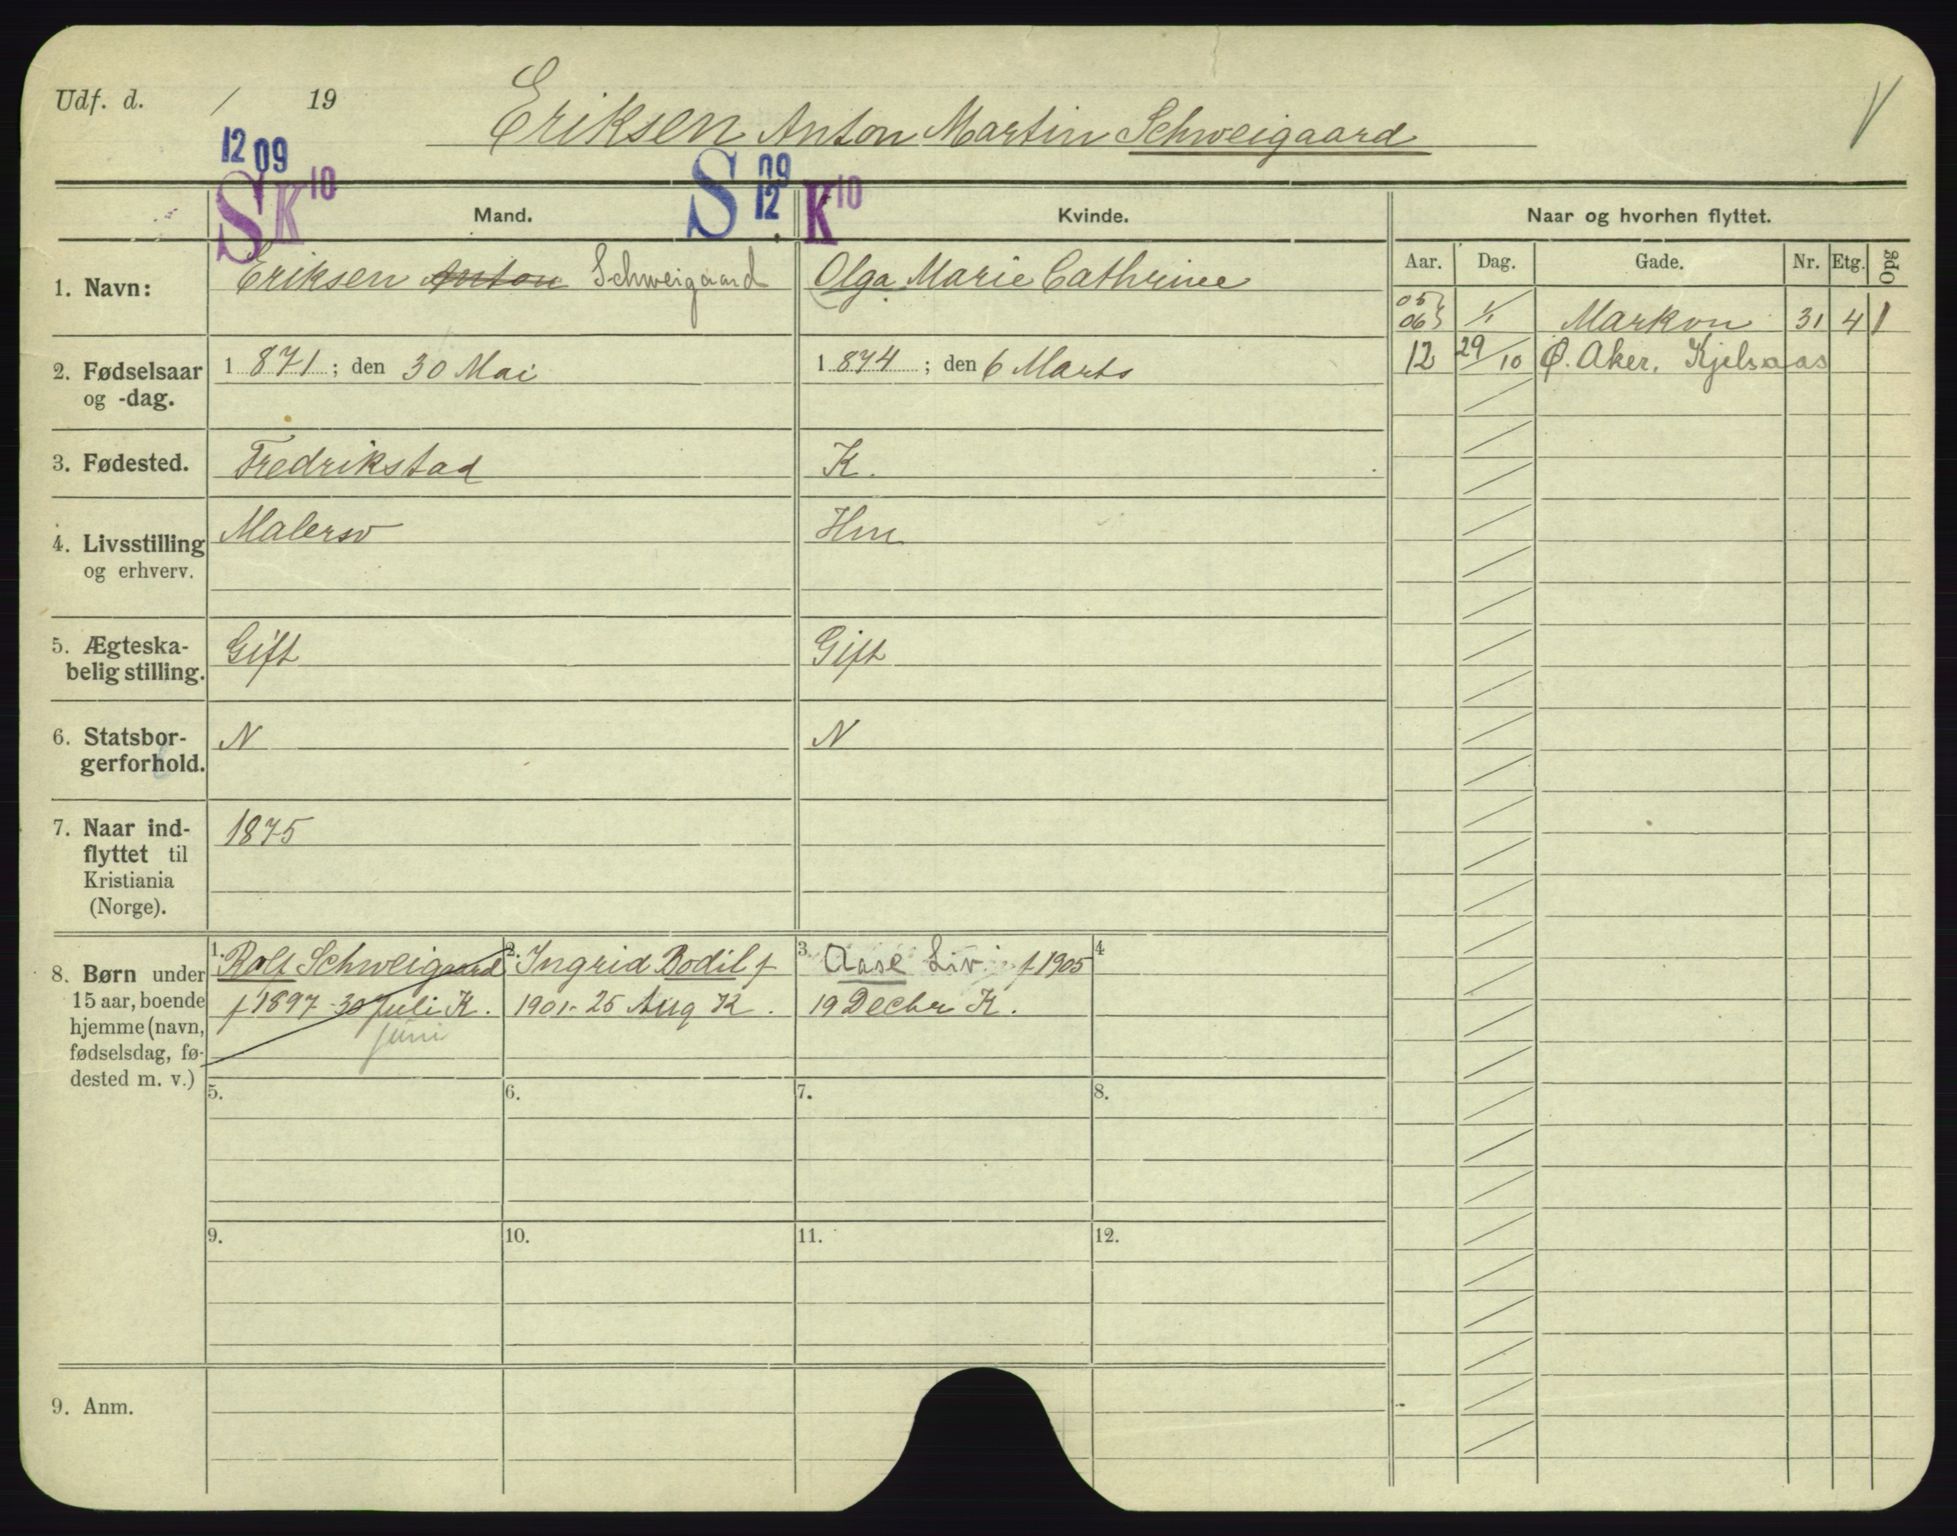 Udf. d. / 19
Eriksen Anton Martin Schweigaard
V
12 09
S K 10
S 09
12
K 10
Mand.
Kvinde.
Naar og hvorhen flyttet.
Aar. Dag. Gade. Nr. Etg. Opg
1. Navn:
Eriksen Anton Schweigaard
Olga Marie Cathrine
05
06 1/1 Markvn 31 4 1
12 29/10 Ø. Aker. Kjelsaas
2. Fødselsaar
og -dag.
1 871 ; den 30 Mai
1 874 ; den 6 Marts
3. Fødested.
Fredrikstad
K.
4. Livsstilling
og erhverv.
Malersv
Hm
5. Ægteska-
belig stilling.
Gift
Gift
6. Statsbor-
gerforhold.
N
N
7. Naar ind-
flyttet til
Kristiania
(Norge).
1875
8. Børn under
15 aar, boende
hjemme (navn,
fødselsdag, fø-
dested m. v.)
1. Rolf Schweigaard
f 1897 - 30 Juli K.
Juni
2. Ingrid Bodil f
1901 - 25 Aug K.
3. Aase Liv f 1905
19 Decbr K.
4
5. 6. 7. 8.
9. 10. 11. 12.
9. Anm.